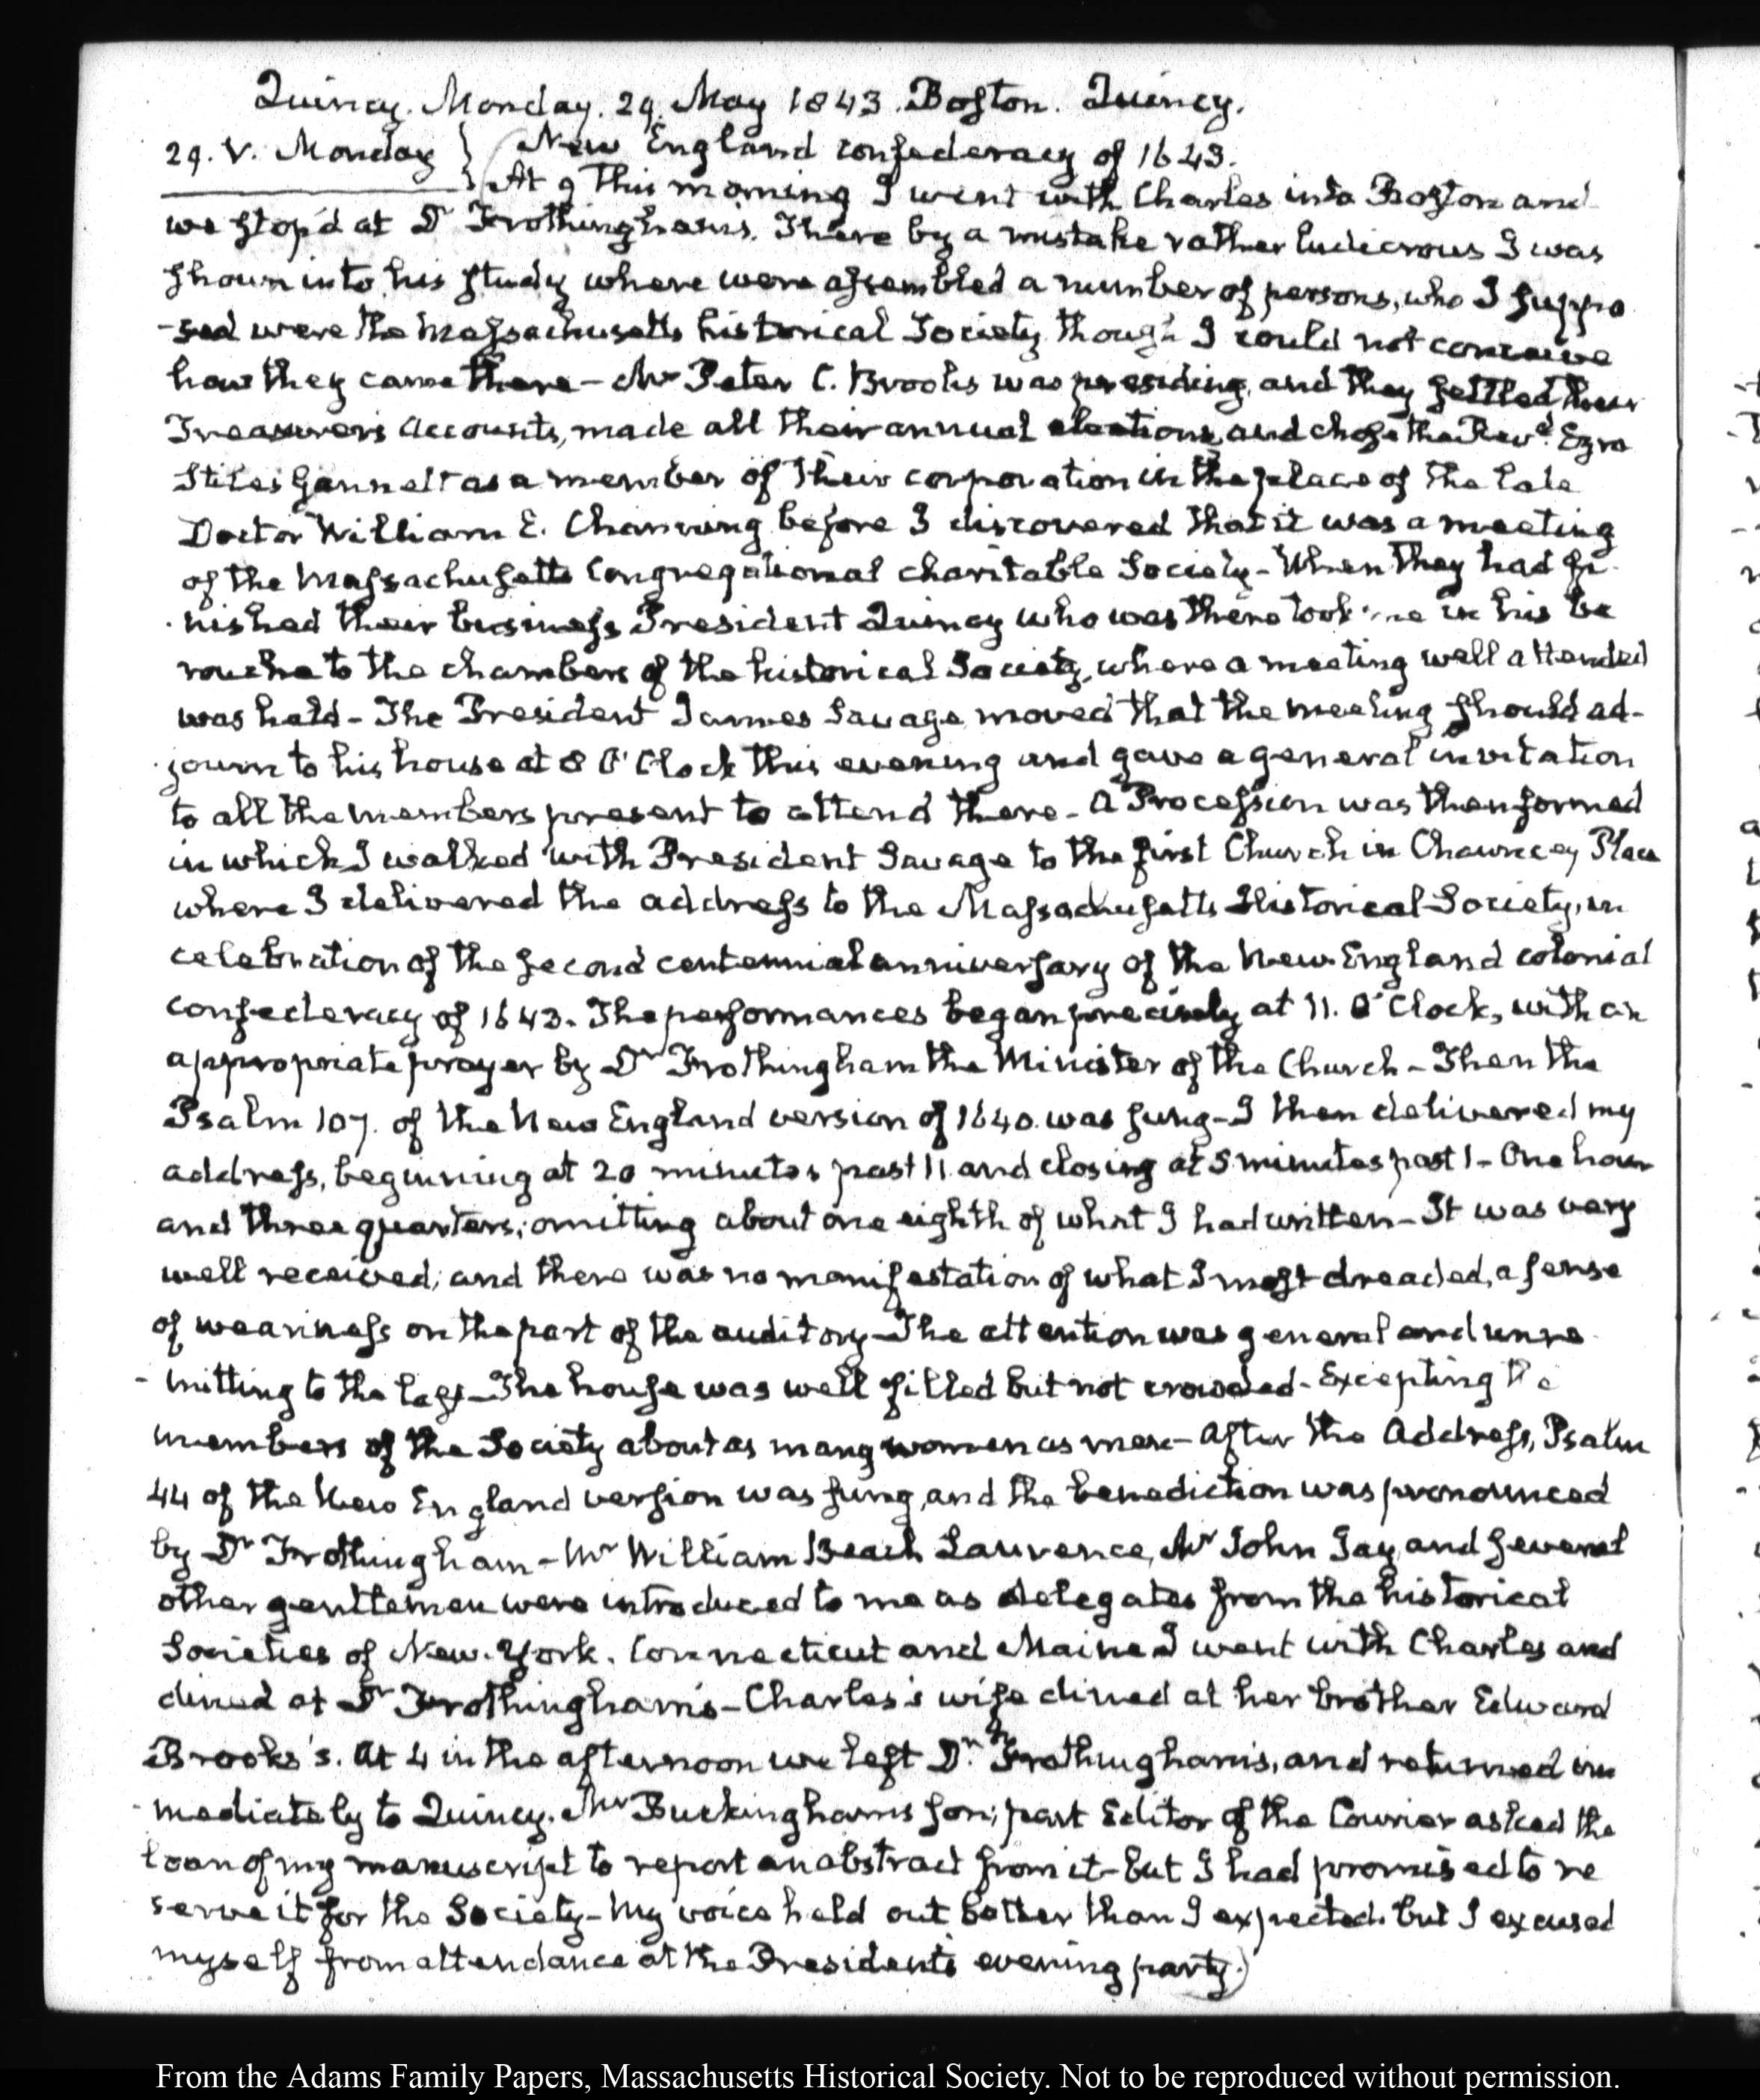 Quincy. Monday. 29. May 1843. Boston. Quincy.
29. V. Monday } (New England confederacy of 1643.
At 9 this morning I went with Charles into Boston and
we stop'd at Dr Frothingham's. There by a mistake rather ludicrous I was
shown into his study where were assembled a number of persons, who I suppo
-sed were the Massachusetts historical Society though I could not conceive
how they came there - Mr Peter C. Brooks was presiding, and they settled their
Treasurer's Accounts, made all their annual elections, and chose the Revd. Ezra
Stiles Gannett as a member of their corporation in the place of the late
Doctor William E. Channing before I discovered that it was a meeting
of the Massachusetts Congregational charitable Society - When they had fi-
-nished their business President Quincy who was there took me in his ba
rouche to the chambers of the historical Society, where a meeting well attended
was held - The President James Savage moved that the meeting should ad-
-journ to his house at 8 O'Clock this evening and gave a general invitation
to all the members present to attend there - A Procession was then formed
in which I walked with President Savage to the first Church in Chauncey Place
where I delivered the address to the Massachusetts Historical Society, in
celebration of the second centennial anniversary of the New England colonial
confederacy of 1643. The performances began precisely at 11. O'Clock, with an
appropriate prayer by Dr Frothingham the Minister of the Church - Then the
Psalm 107. of the New England version of 1640. was sung - I then delivered my
address, beginning at 20 minutes past 11 and closing at 5 minutes past 1 - One hour
and three quarters; omitting about one eighth of what I had written - It was very
well received; and there was no manifestation of what I most dreaded, a sense
of weariness on the part of the auditory - The attention was general and unre-
-mitting to the last - The house was well filled but not crowded - Excepting the
members of the Society about as many women as men - After the Address, Psalm
44 of the New England version was sung, and the benediction was pronounced
by Dr Frothingham - Mr William Beach Lawrence, Mr John Jay, and several
other gentlemen were introduced to me as delegates from the historical
Societies of New-York, Connecticut and Maine I went with Charles and
dined at Dr Frothingham's - Charles's wife dined at her brother Edward
Brooks's. At 4 in the afternoon we left Dr. Frothingham's, and returned im
-mediately to Quincy. Mr Buckingham's son; part Editor of the Courier asked the
loan of my manuscript to report an abstract from it - but I had promised to re
serve it for the Society - My voice held out better than I expected. but I excused
myself from attendance at the President's evening party.)
From the Adams Family Papers, Massachusetts Historical Society. Not to be reproduced without permission.